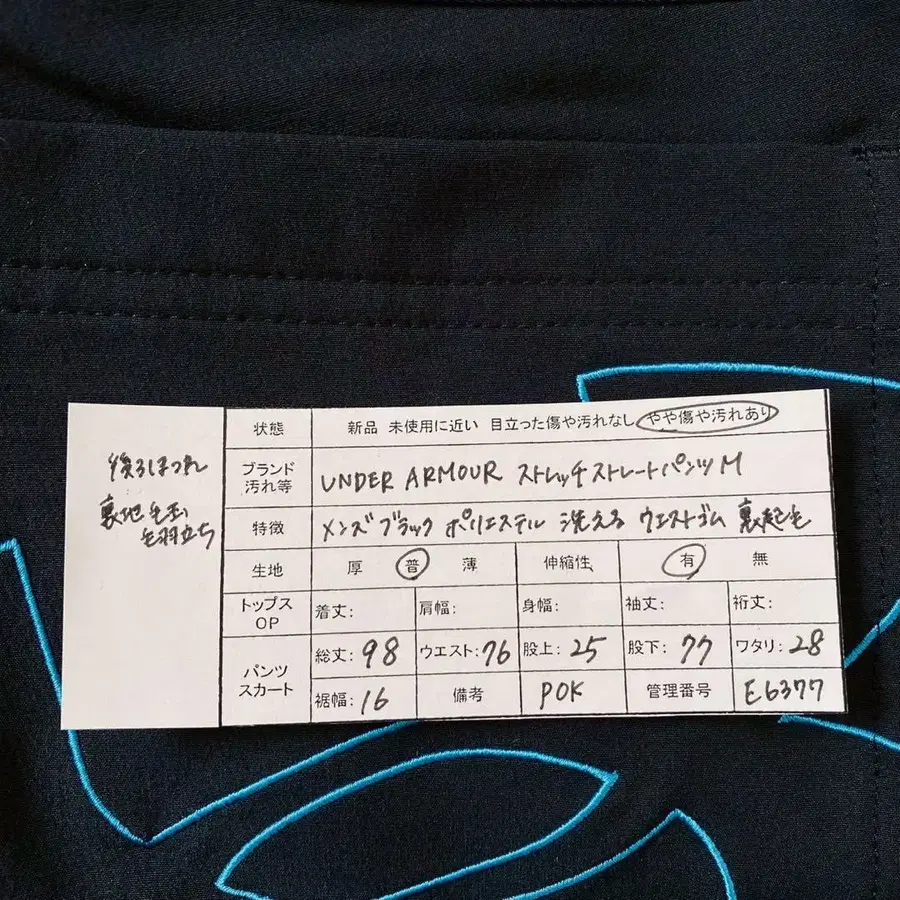 後ろほつれ
裏地毛玉
毛羽立ち
状態 新品 未使用に近い 目立った傷や汚れなし やや傷や汚れあり
ブランド
汚れ等
UNDER ARMOUR ストレッチストレートパンツM
特徴 メンズブラック ポリエステル 洗える ウエストゴム 裏起毛
生地 厚 普 薄 伸縮性 有 無
トップス
OP
着丈: 肩幅: 身幅: 袖丈: 裄丈:
パンツ
スカート
総丈:98 ウエスト:76 股上:25 股下:77 ワタリ:28
裾幅:16 備考 POK 管理番号 E6377